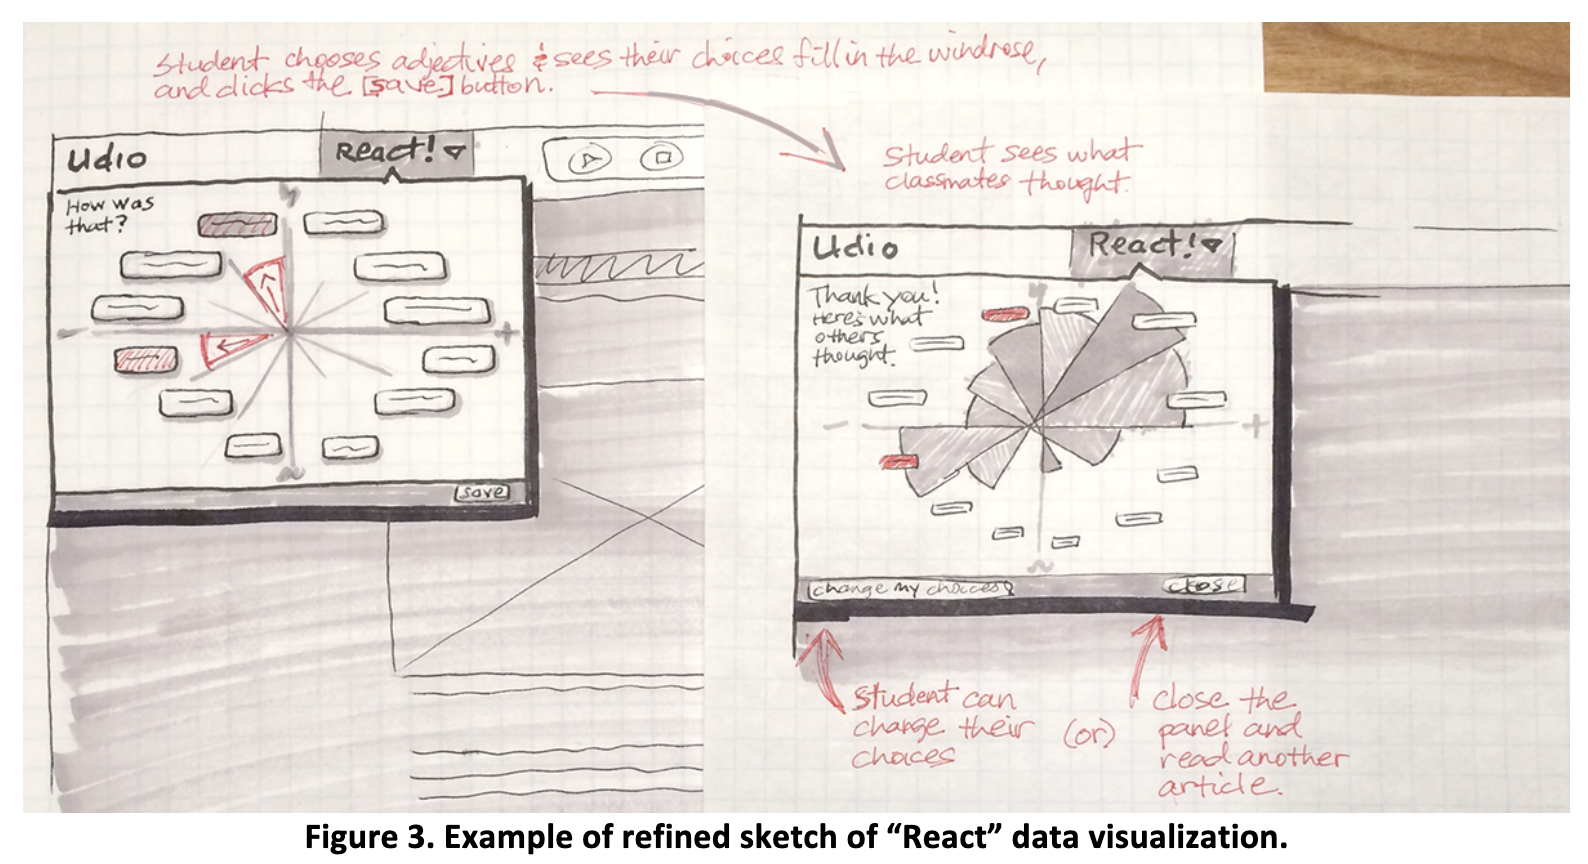 Student chooses adjectives & sees their choices fill in the windrose,
and clicks the [save] button.
Udio
React!
How was
that?
save
Student sees what
classmates thought.
Udio
React!
Thank you!
Here's what
others
thought.
change my choices
close
Student can
change their
choices
(or)
close the
panel and
read another
article.
Figure 3. Example of refined sketch of “React” data visualization.